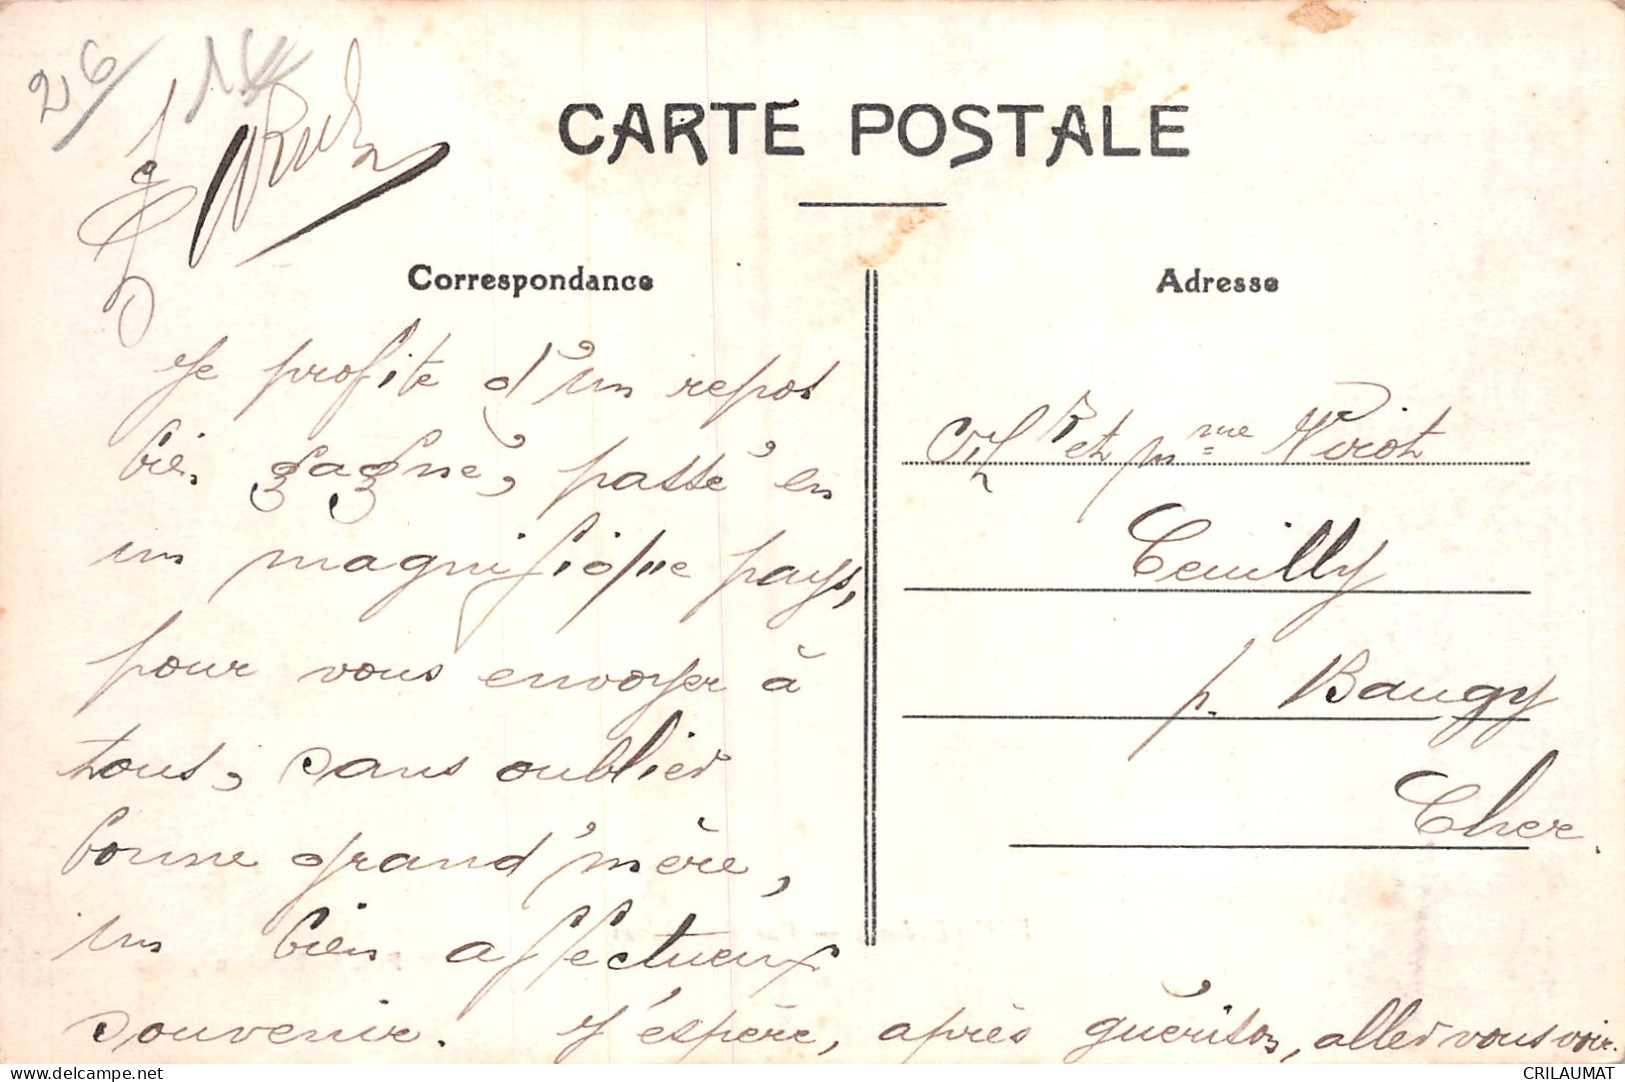 26
CARTE POSTALE
Correspondance
Je profite d'un repos
bien gagné, passé en
un magnifique pays,
pour vous envoyer à
tous, sans oublier
bonne grand'mère,
un bien affectueux
souvenir. J'espère, après guérison, aller vous voir.
Adresse
Mr et Mme Virot
Teuilly
p. Baugy
Cher.
CRILAUMAT